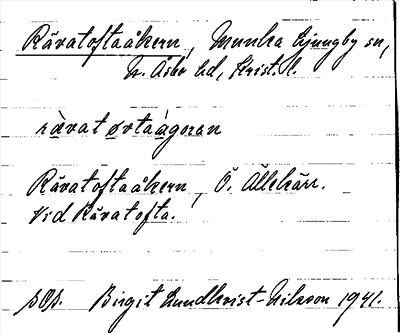 Råvatoftaåkern, Munka Ljungby sn,
N. Åsbo hd, Krist. l.
råvat ǫvtaágoran
Råvatoftaåkern, Ö. Ållekärr.
Vid Råvatofta.
Birgit Lundkvist-Nilsson 1941.